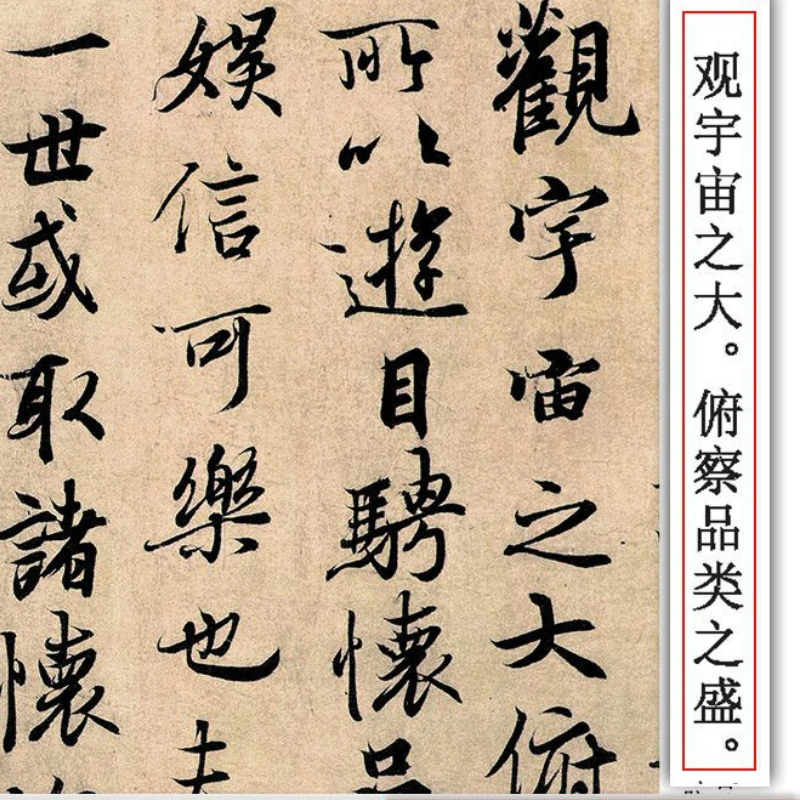 观宇宙之大。俯察品类之盛。
觀宇宙之大俯
所以遊目騁懷
娛信可樂也夫
一世或取諸懷